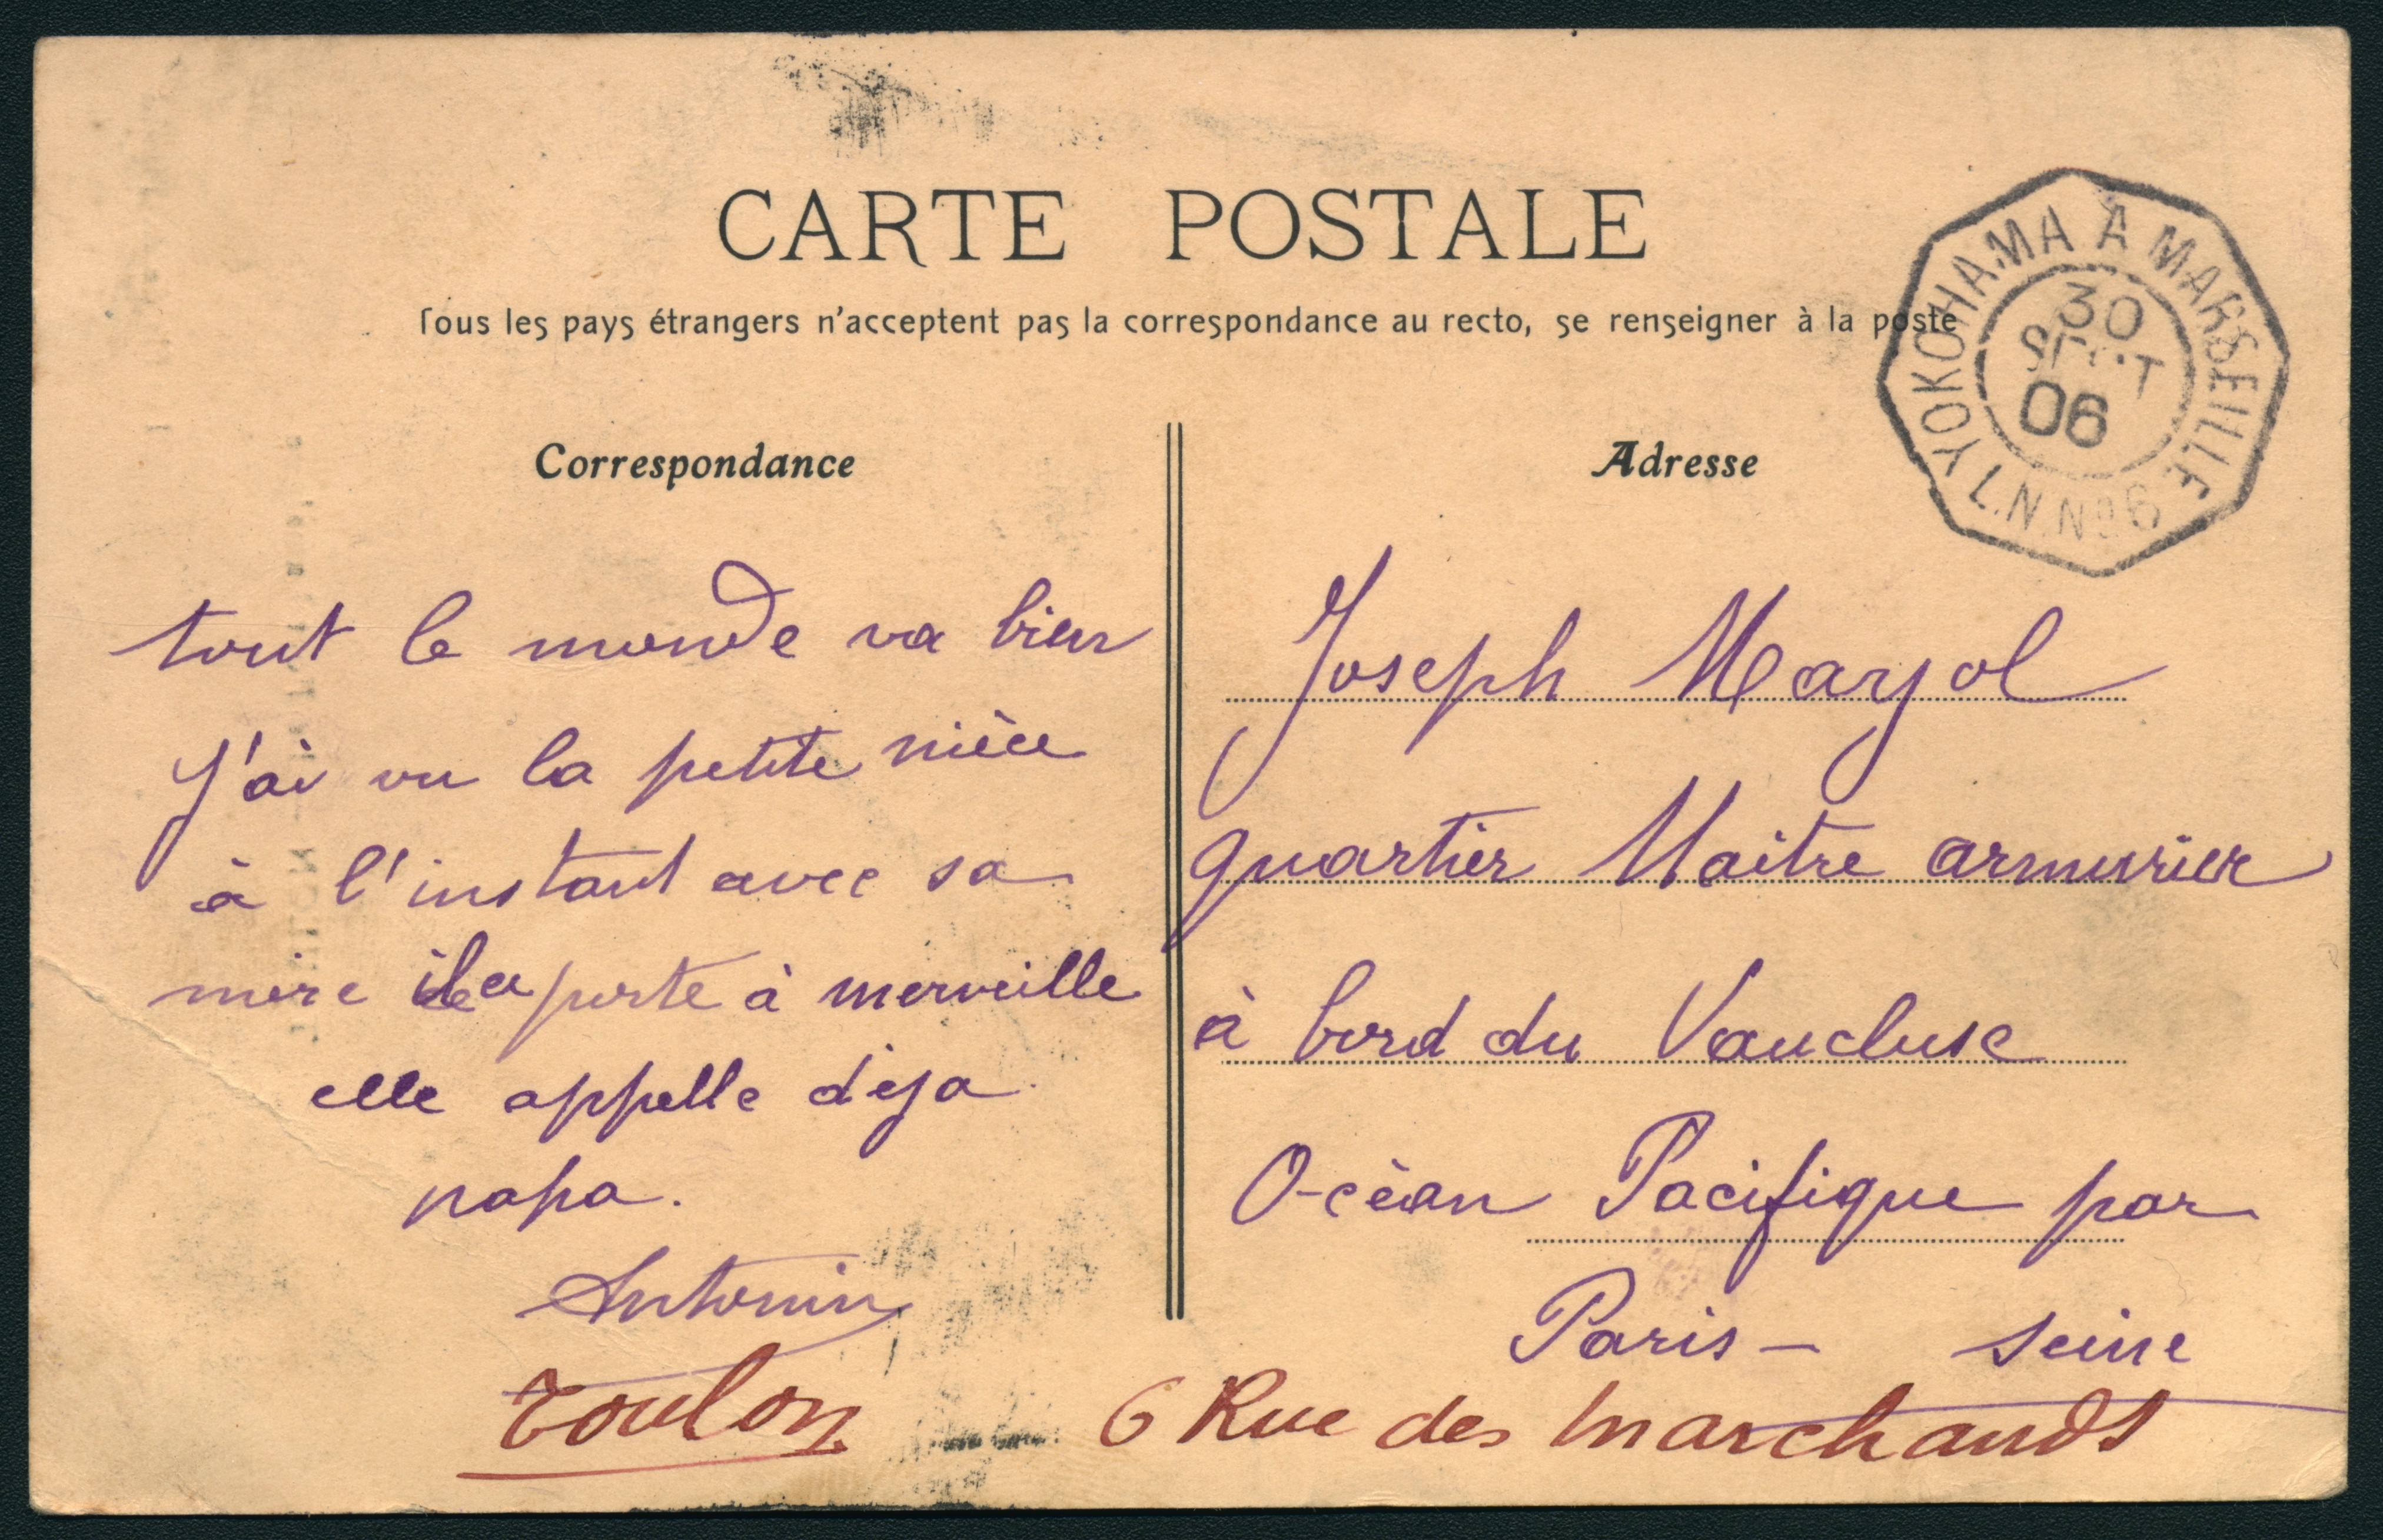 CARTE POSTALE
Tous les pays étrangers n'acceptent pas la correspondance au recto, se renseigner à la poste
YOKOHAMA À MARSEILLE
30
SEPT
06
L.N. Nº6
Correspondance
tout le monde va bien
J'ai vu la petite nièce
à l'instant avec sa
mère porte à merveille
elle appelle déja
papa.
Antonin
Toulon
Adresse
Joseph Mayol
quartier Maitre armurier
à bord du Vaucluse
Océan Pacifique par
Paris - Seine
6 Rue des Marchands